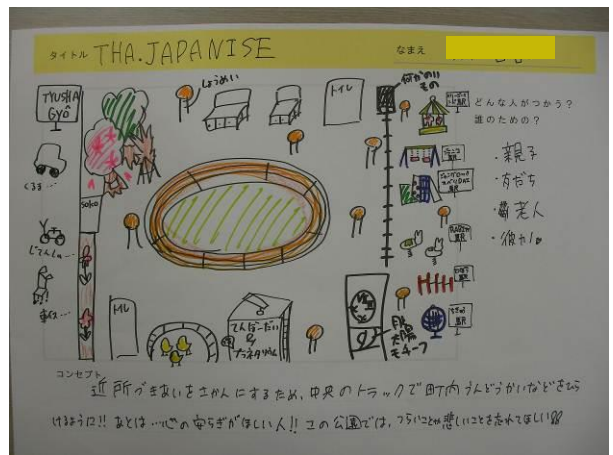 タイトル THA.JAPANISE
なまえ
TYUSHA
GYŌ
しょうめい
トイレ
どんな人がつかう？
誰のための？
・親子
・友だち
・老人
くるま…
soko
じてんしゃ…
トイレ
てんぼーだい
&
プラネタリウム
月
太陽
モチーフ
コンセプト
近所づきあいをさかんにするため、中央のトラックで町内うんどうかいなどをひら
けるように!! あとは…心の安らぎがほしい人!! この公園では、つらいことや悲しいことを忘れてほしい